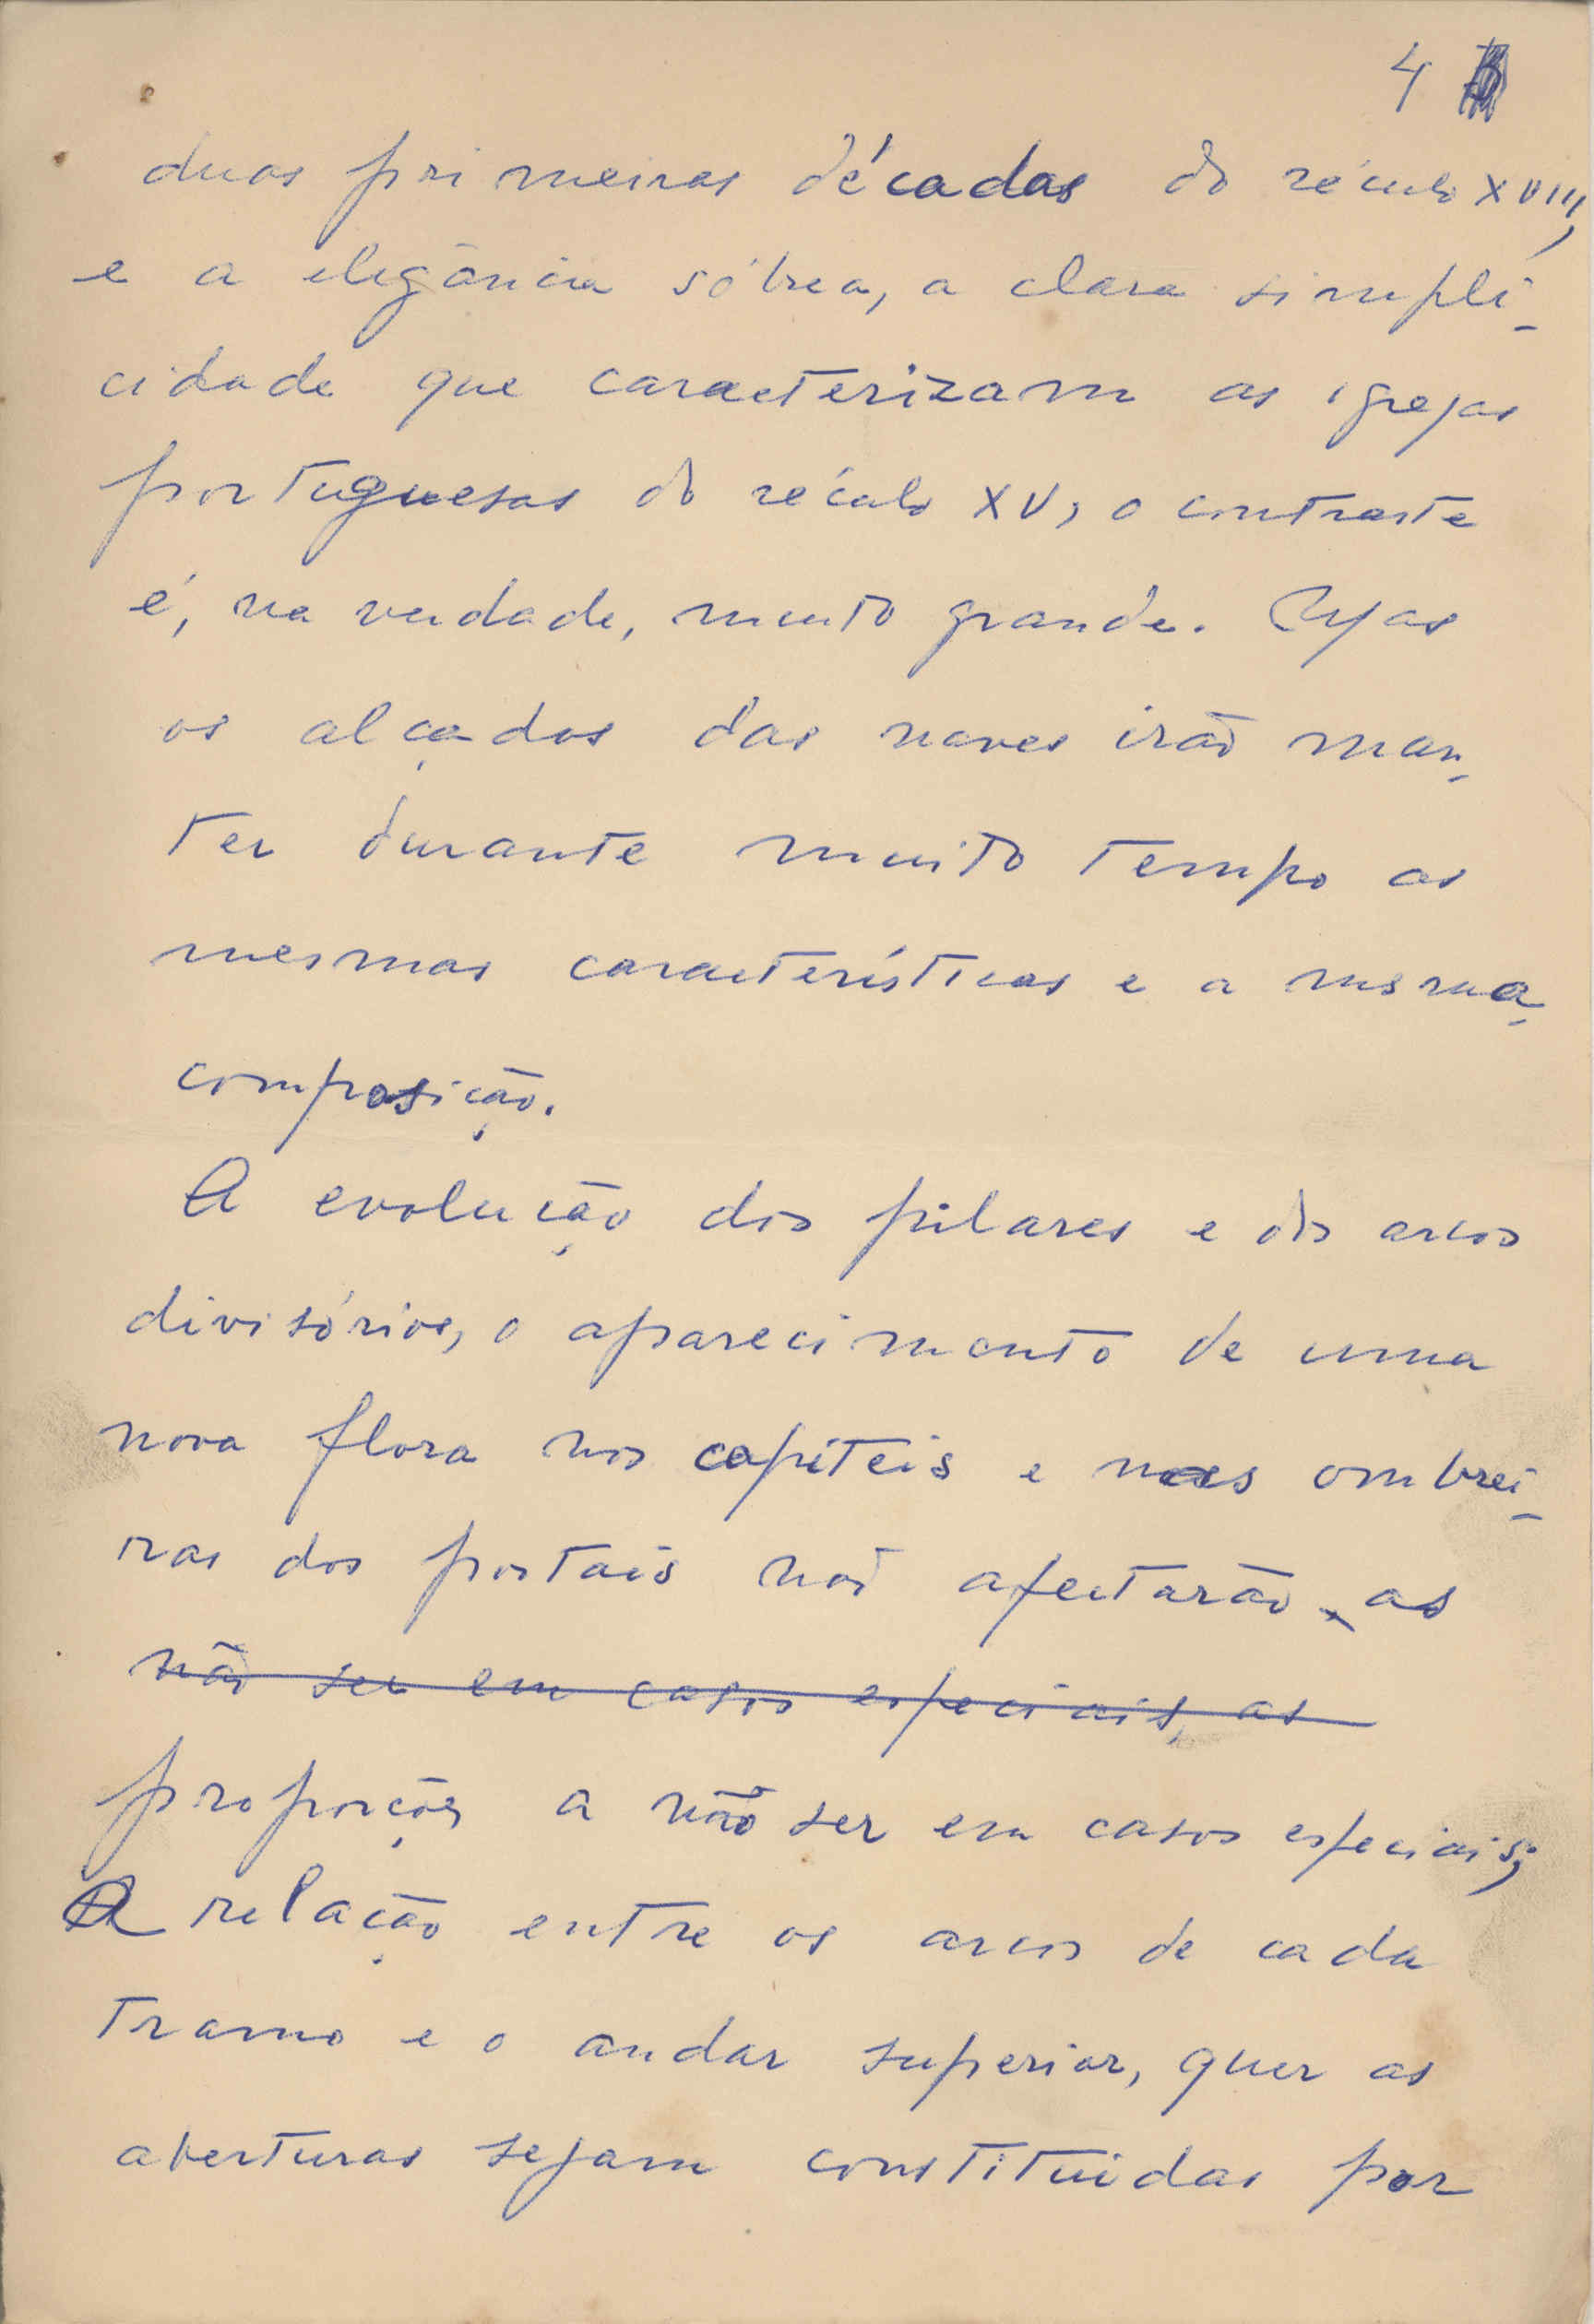 4
duas primeiras décadas do século XVIII,
e a elegância sóbrea, a clara simpli-
cidade que caracterizam as igrejas
portuguesas do século XV, o contraste
é, na verdade, muito grande. Mas
os alçados das naves irão man-
ter durante muito tempo as
mesmas características e a mesma
composição.
A evolução dos pilares e dos arcos
divisórios, o aparecimento de uma
nova flora nos capiteis e nas ombrei-
ras dos portais não afectarão as
não ser em casos especiais, as
proporções a não ser em casos especiais;
A relação entre os arcos de cada
tramo e o andar superior, quer as
aberturas sejam constituidas por